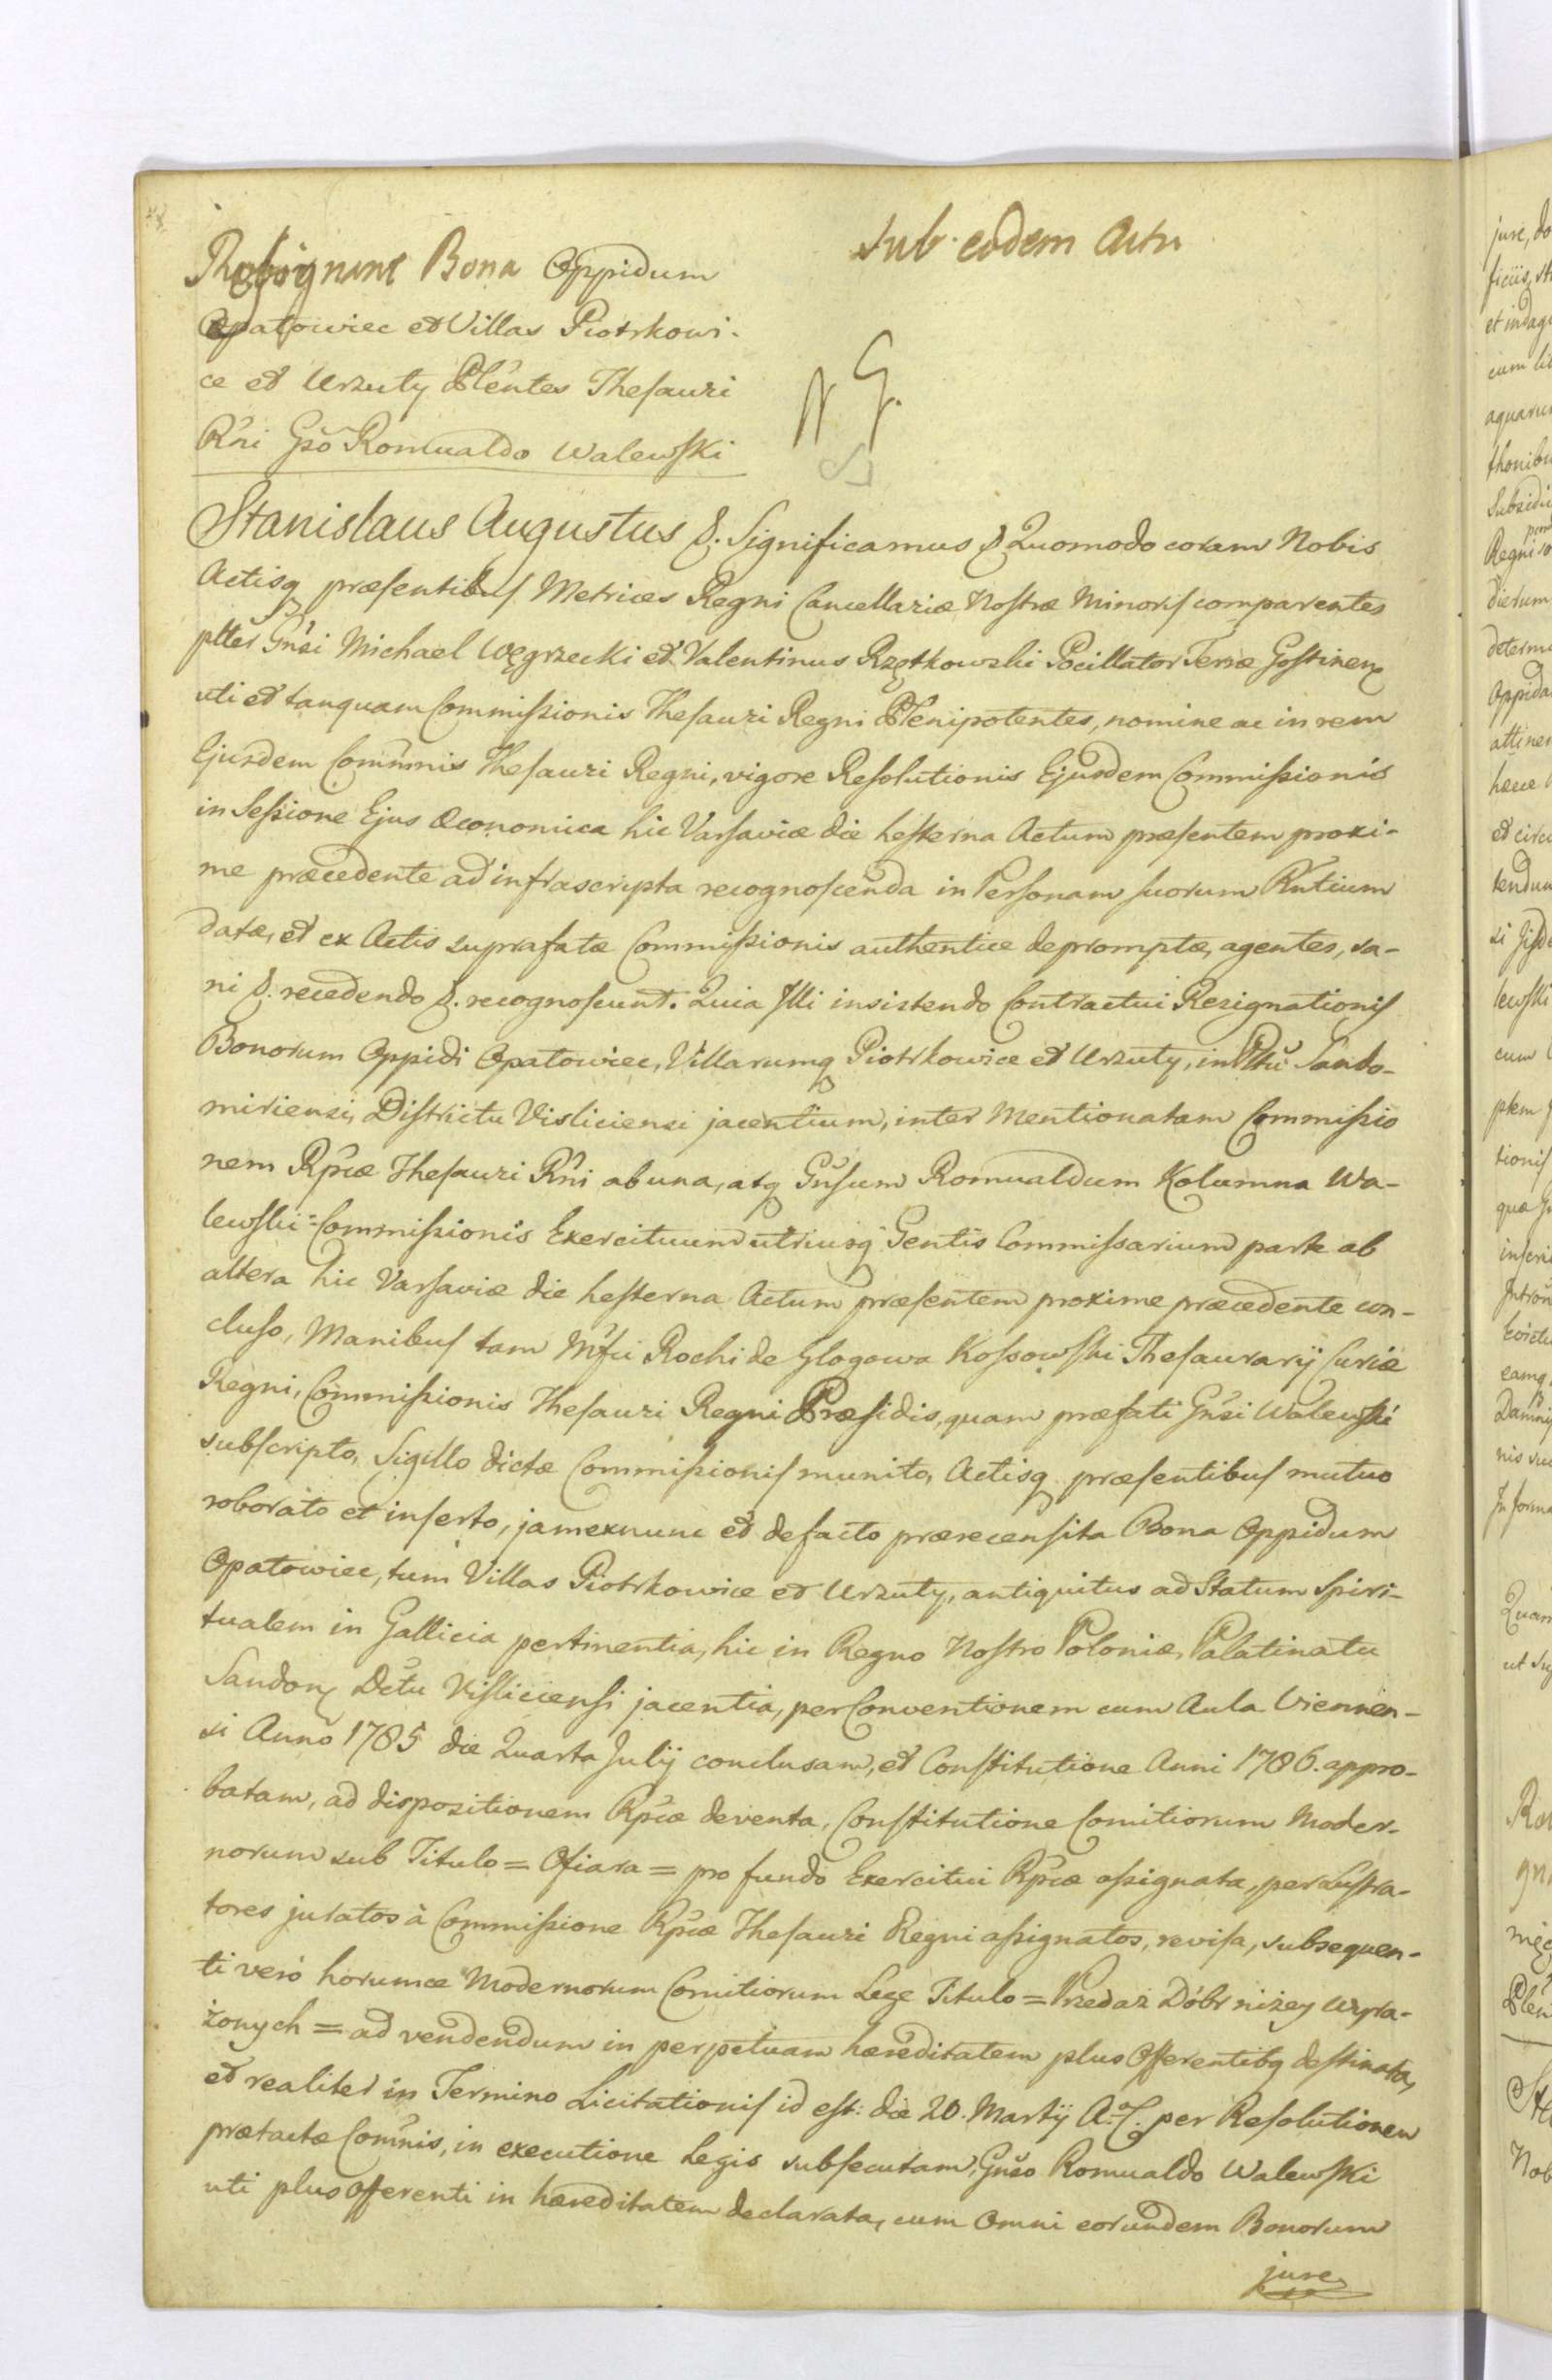 Sub eodem Actu
Resignant Bona Oppidum
Opatowiec et Villas Piotrkowi-
ce et Urzuty Plentes Thesauri
Rni Gso Romualdo Walewski
Stanislaus Augustus &. Significamus & Quomodo coram Nobis
Actisq præsentibus Metrices Regni Cancellariæ Nostræ Minoris comparentes
plter Gnsi Michael Węgrzecki et Valentinus Rzętkowski Pocillator Terræ Gostinen
uti et tanquam Commissionis Thesauri Regni Plenipotentes, nomine ac in rem
Ejusdem Commnis Thesauri Regni, vigore Resolutionis Ejusdem Commissionis
in Sessione Ejus Œconomica hic Varsaviæ die hesterna Actum præsentem proxi-
me præcedente ad infrascripta recognoscenda in Personam suorum Rntium
datæ, et ex Actis suprafatæ Commissionis authentice depromptæ, agentes, sa-
ni &. recedendo &. recognoscunt. Quia Illi insistendo Contractui Resignationis
Bonorum Oppidi Opatowiec, Villarumq Piotrkowice et Urzuty, in Pltu Sando-
miriensi, Districtu Visliciensi jacentium, inter Mentionatam Commissio
nem Rpcæ Thesauri Rni ab una, atq Gnsum Romualdum Kolumna Wa-
lewski Commissionis Exercituum utriusq Gentis Commissarium parte ab
altera hic Varsaviæ die hesterna Actum præsentem proxime præcedente con-
cluso, Manibus tam Mfci Rochi de Glogowa Kossowski Thesaurarij Curiæ
Regni, Commissionis Thesauri Regni Præsidis, quam præfati Gnsi Walewski
subscripto, Sigillo dictæ Commissionis munito, Actisq præsentibus mutuo
roborato et inserto, jam exnunc et defacto prærecensita Bona Oppidum
Opatowiec, tum Villas Piotrkowice et Urzuty, antiquitus ad Statum Spiri-
tualem in Gallicia pertinentia, hic in Regno Nostro Poloniæ, Palatinatu
Sandom Dctu Visliciensi jacentia, per Conventionem cum Aula Viennen-
si Anno 1785 die Quarta Julij conclusam, et Constitutione Anni 1786. appro-
batam, ad dispositionem Rpcæ deventa, Constitutione Comitiorum Moder-
norum sub Titulo = Ofiara = pro fundo Exercitui Rpcæ assignata, per Lustra-
tores juratos à Commissione Rpcæ Thesauri Regni assignatos, revisa, subsequen-
ti veró horumce Modernorum Comitiorum Lege Titulo = Przedaż Dóbr niżey wyra-
żonych = ad vendendum in perpetuam hæreditatem plus Offerentibq destinata,
et realiter in Termino Licitationis id est: die 20. Martij A. C. per Resolutionem
prætactæ Commnis, in executione Legis subsecutam, Gnso Romualdo Walewski
uti plus offerenti in hæreditatem declarata, cum Omni eorundem Bonorum
jure